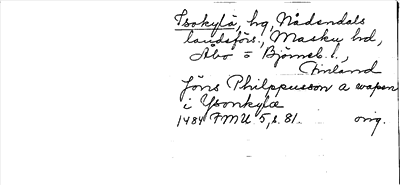 Isokylä, hg, Nådendals
landsförs., Masku hd,
Åbo o Björneb. l.,
Finland
Jöns Philppusson a wapen
i Ysonkylæ
1484 FMU 5, s. 81. orig.